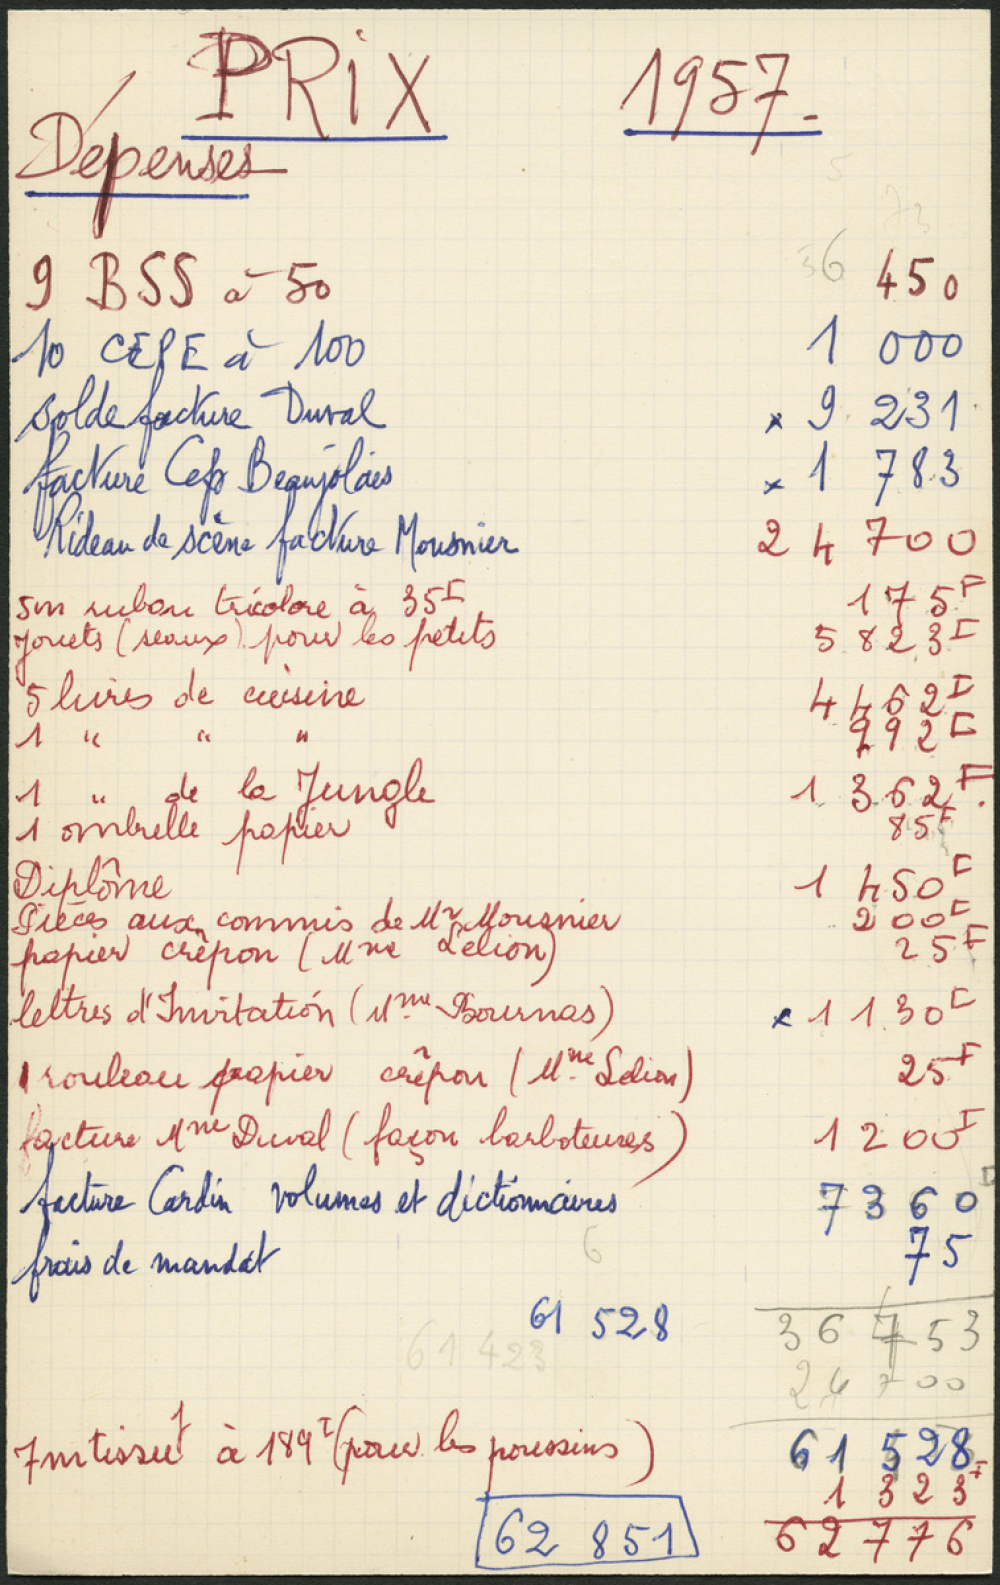 PRiX 1957.
Dépenses
9 BSS à 50 450
10 CEPE à 100 1 000
solde facture Duval x 9 231
facture Cep Beaujolais x 1 783
Rideau de scène facture Mousnier 24 700
5m ruban tricolore à 35F 175F
Jouets (seaux) pour les petits 5 823F
5 livres de cuisine 4 462F
1 " " " 992F
1 " de la Jungle 1 362F
1 ombrelle papier 85F
Diplôme 1 450F
Pièces aux commis de Mr Mousnier 200F
papier crêpon (Mme Lelion) 25F
lettres d'Invitation (Mme Bournas) x 1 130F
1 rouleau papier crêpon (Mme Lelion) 25F
facture Mme Duval (façon barboteuses) 1 200F
facture Cardin volumes et dictionnaires 7 360
frais de mandat 75
61 528 36 753
61 423 24 700
7m tissu à 189F (pour les poussins) 61 528
1 323F
62 851 62 776